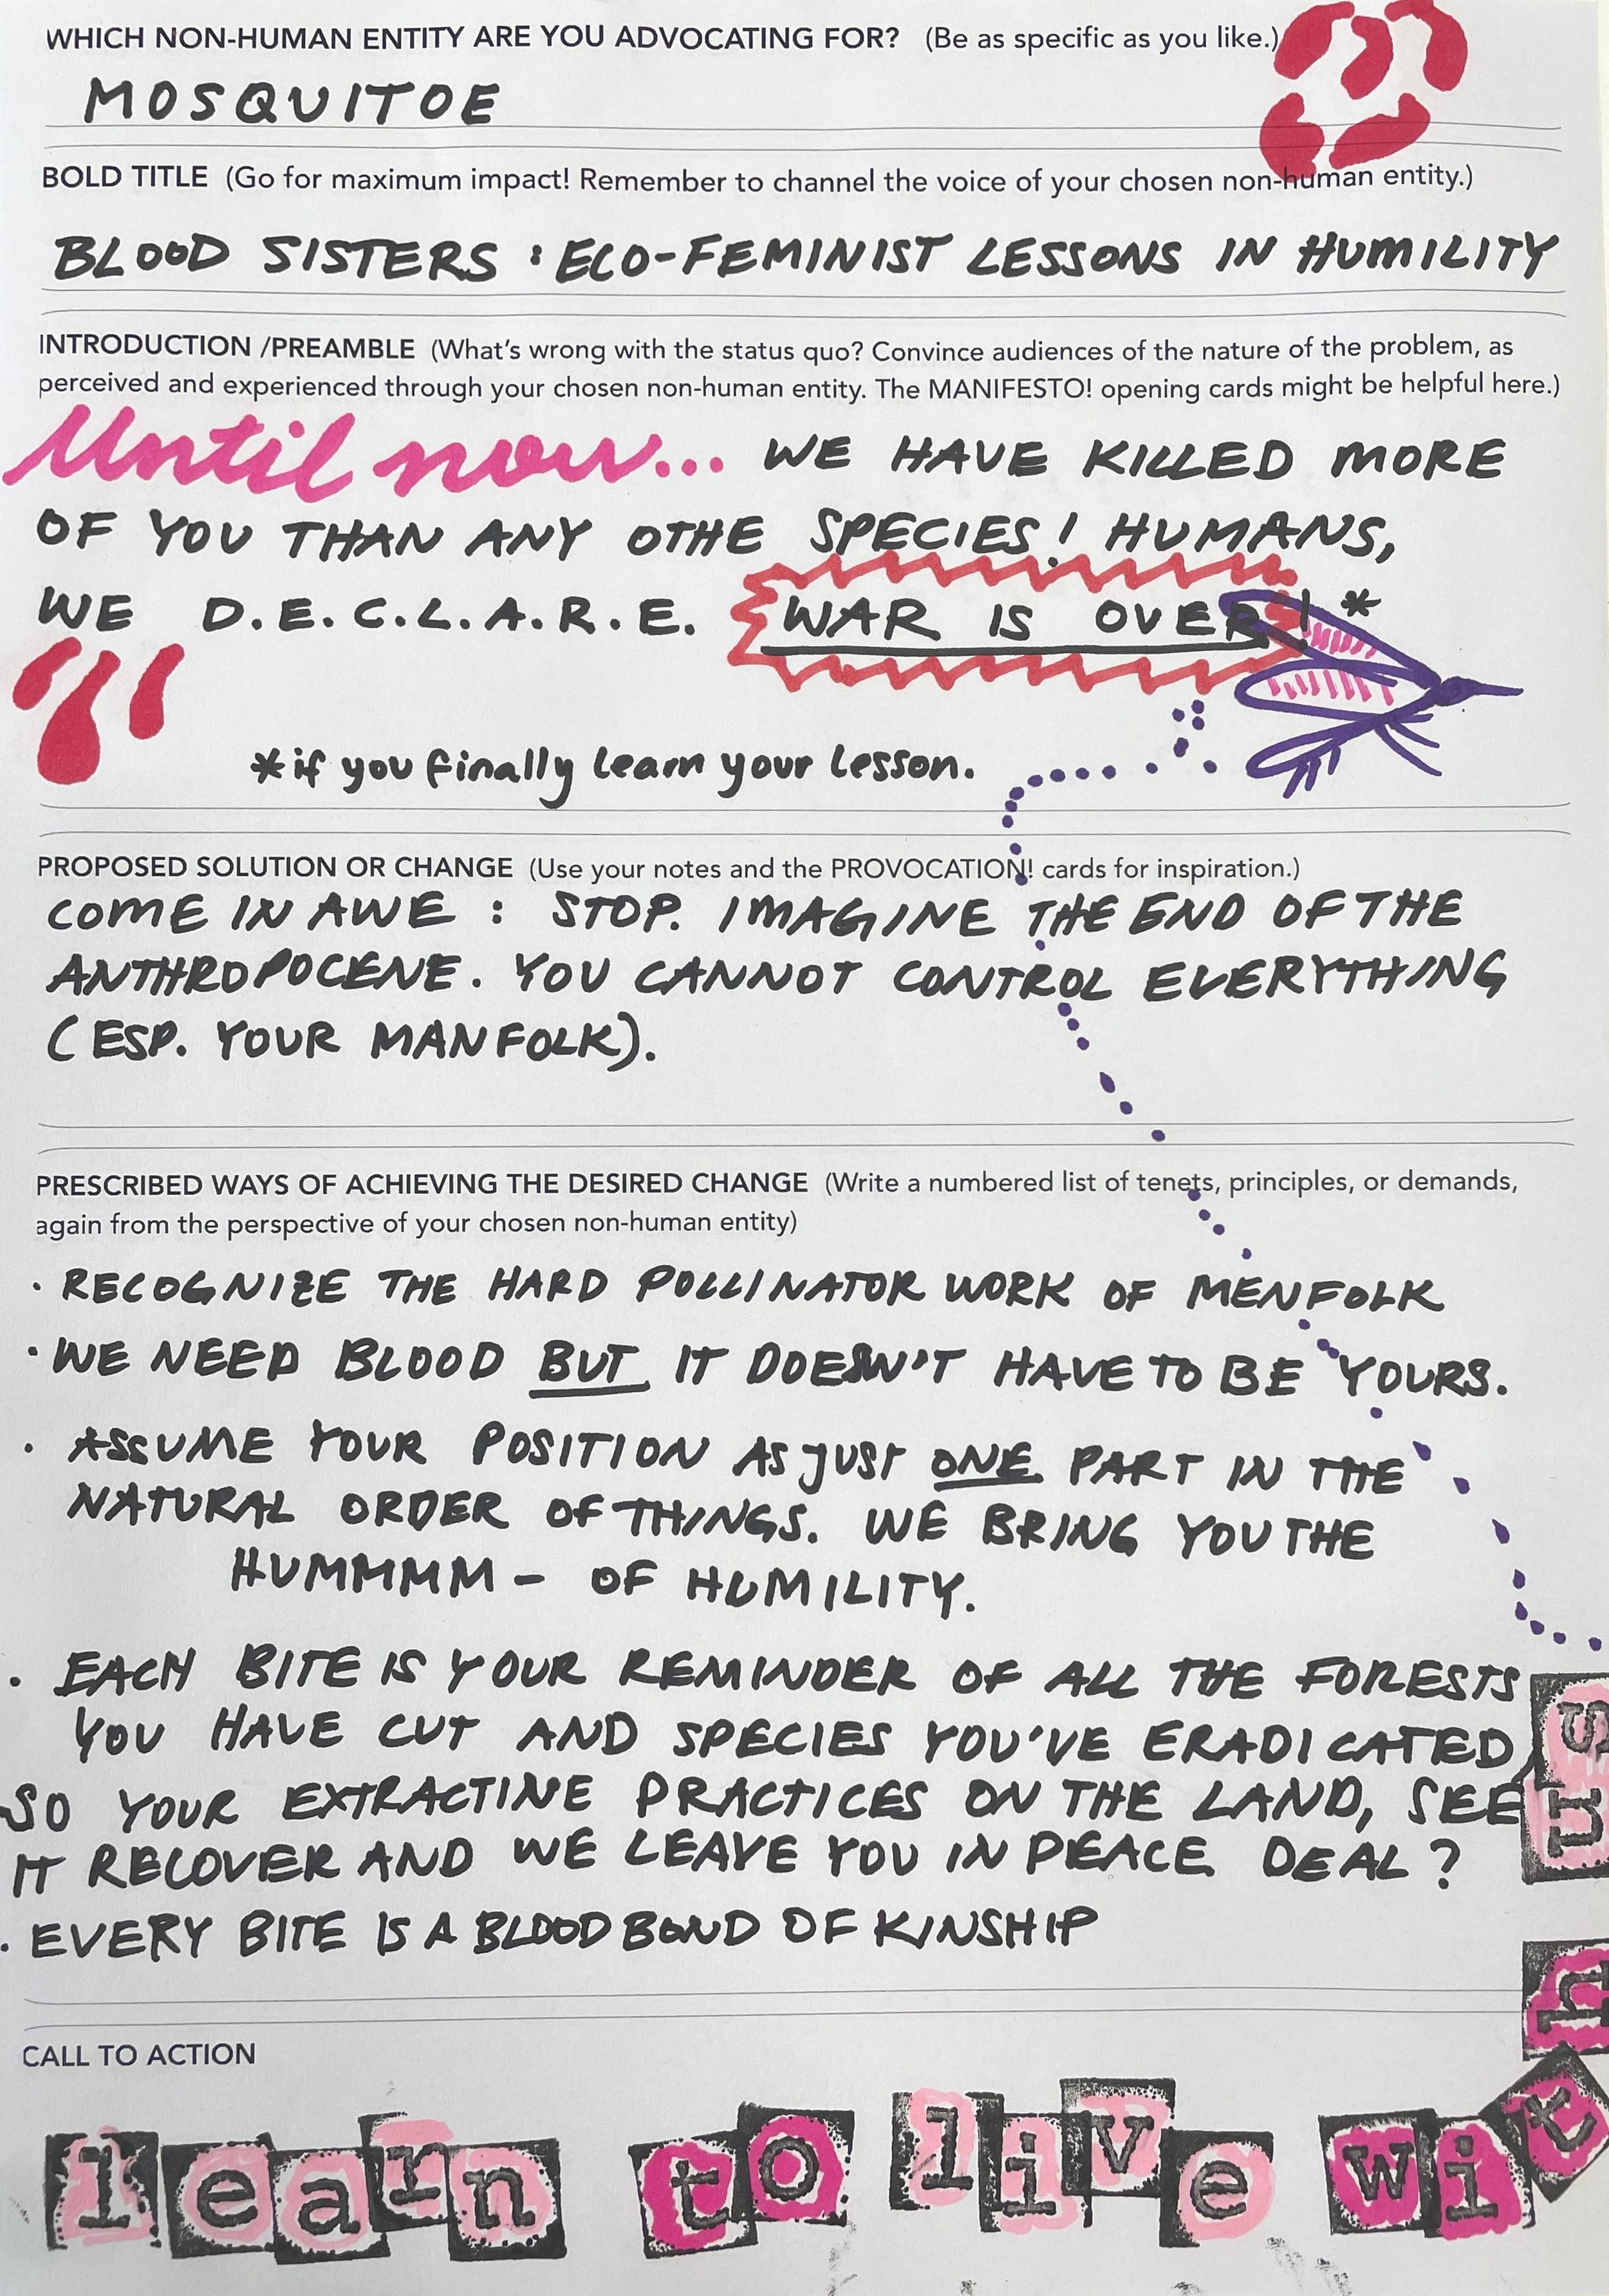 WHICH NON-HUMAN ENTITY ARE YOU ADVOCATING FOR? (Be as specific as you like.)
MOSQUITOE
BOLD TITLE (Go for maximum impact! Remember to channel the voice of your chosen non-human entity.)
BLOOD SISTERS : ECO-FEMINIST LESSONS IN HUMILITY
INTRODUCTION /PREAMBLE (What's wrong with the status quo? Convince audiences of the nature of the problem, as
perceived and experienced through your chosen non-human entity. The MANIFESTO! opening cards might be helpful here.)
Until now... WE HAVE KILLED MORE
OF YOU THAN ANY OTHE SPECIES! HUMANS,
WE D.E.C.L.A.R.E. WAR IS OVER! *
*if you finally learn your lesson.
PROPOSED SOLUTION OR CHANGE (Use your notes and the PROVOCATION! cards for inspiration.)
COME IN AWE : STOP. IMAGINE THE END OF THE
ANTHROPOCENE. YOU CANNOT CONTROL EVERYTHING
(ESP. YOUR MANFOLK).
PRESCRIBED WAYS OF ACHIEVING THE DESIRED CHANGE (Write a numbered list of tenets, principles, or demands,
again from the perspective of your chosen non-human entity)
· RECOGNIZE THE HARD POLLINATOR WORK OF MENFOLK
· WE NEED BLOOD BUT IT DOESN'T HAVE TO BE YOURS.
· ASSUME YOUR POSITION AS JUST ONE PART IN THE
NATURAL ORDER OF THINGS. WE BRING YOU THE
HUMMMM - OF HUMILITY.
· EACH BITE IS YOUR REMINDER OF ALL THE FORESTS
YOU HAVE CUT AND SPECIES YOU'VE ERADICATED,
SO YOUR EXTRACTINE PRACTICES ON THE LAND, SEE
IT RECOVER AND WE LEAVE YOU IN PEACE DEAL?
· EVERY BITE IS A BLOOD BOND OF KINSHIP
CALL TO ACTION
learn to live with
us